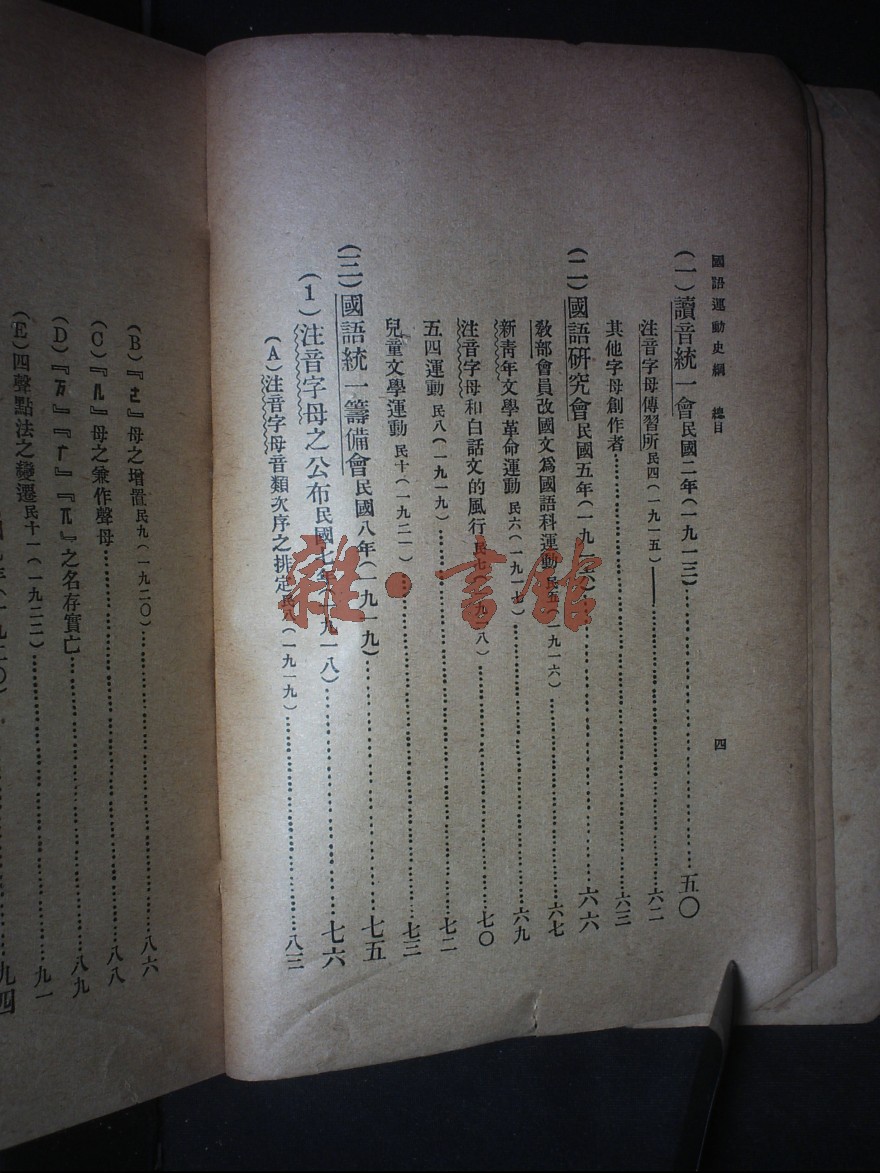 國語運動史綱　總目
四
（一）讀音統一會民國二年（一九一三）……五〇
注音字母傳習所民四（一九一五）——……六二
其他字母創作者……六三
（二）國語研究會民國五年（一九一六）……六六
教部會員改國文爲國語科運動民五（一九一六）……六七
新靑年文學革命運動民六（一九一七）……六九
注音字母和白話文的風行民七（一九一八）……七〇
五四運動民八（一九一九）……七二
兒童文學運動民十（一九二一）……七三
（三）國語統一籌備會民國八年（一九一九）……七五
（1）注音字母之公布民國七年（一九一八）……七六
（A）注音字母音類次序之排定民八（一九一九）……八三
（B）『ㄜ』母之增置民九（一九二〇）……八六
（C）『ㄦ』母之兼作聲母……八八
（D）『万』『ㄬ』『兀』之名存實亡……八九
（E）四聲點法之變遷民十一（一九二二）……九一
九年（一九二〇）……九四
雜·書館